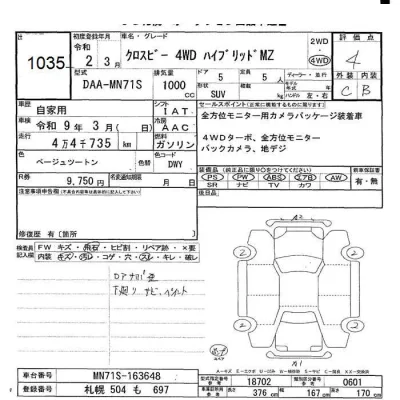 初度登録年月 車名・グレード 2WD 評価点
1035 令和 2年 3月 クロスビー 4WD ハイブリッドMZ 4WD 4
型式 排気量 ドア 定員 ディーラー・並行 外装 内装
DAA-MN71S 1000 CC 5 5人 C B
形状 SUV ハンドル 左・右
車歴 自家用 シフト 1AT セールスポイント(正常に機能するものに限る)
車検 令和 9年 3月(日) 冷房 AAC 全方位モニター用カメラパッケージ装着車
走行 4万4千735 km 燃料 ガソリン 4WDターボ、全方位モニター
色 ベージュツートン 色替 色コード DWY バックカメラ、地デジ
R券 9,750円 名変期限 月 日 PS PW ABS エアB AW 有・無
SR ナビ TV カワ
注意事項申告
修復歴 有【箇所
検査員記入欄 FW キズ・飛石・ヒビ割・リペア跡・X要
内装 キズ・汚レ・コゲ・穴・スレ・キレ・破レ
下廻り サビ
A2
2 2
2 2
A1
スペア
車台番号 MN71S-163648 型式指定番号 18702 類別区分番号 0601
登録番号 札幌 504 も 697 長さ 376 cm 幅 167 cm 高さ 170